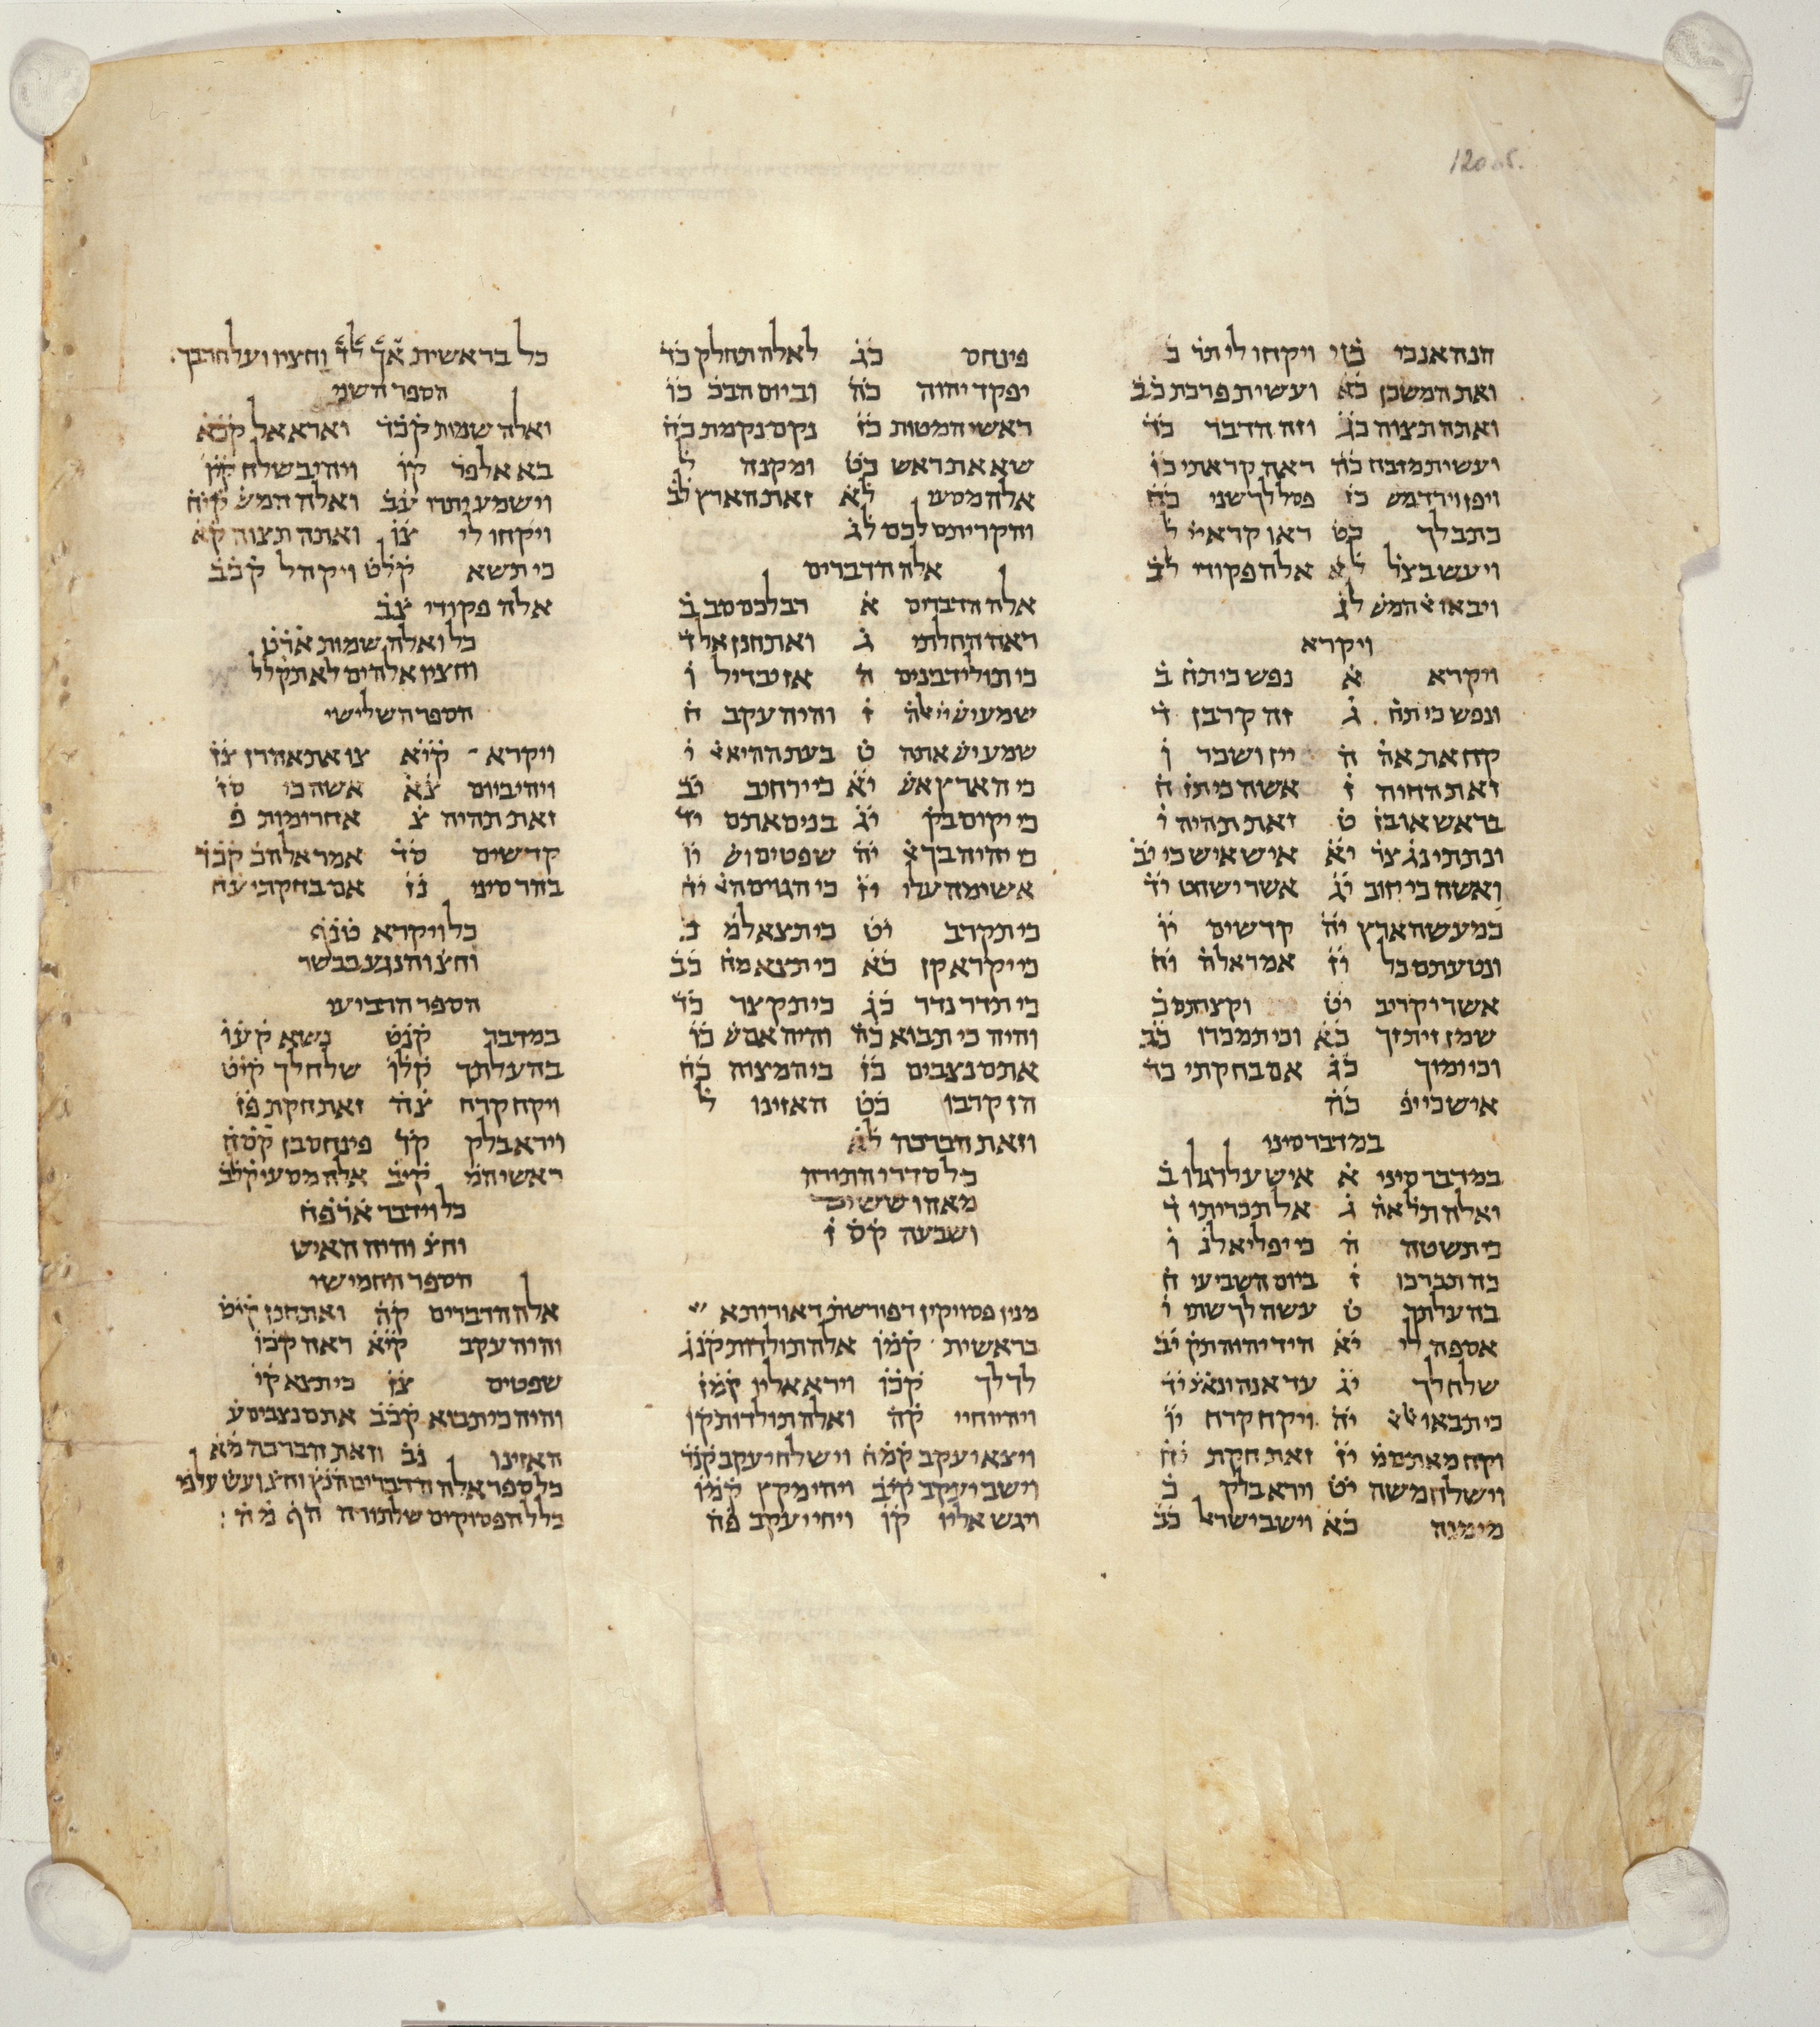 120 v.
הנה אנכי יט ויקחו לי תר כ
ואת המשכן כא ועשית פרכת כב
ואתה תצוה כג וזה הדבר כד
ועשית מזבח כה ראה קראתי כו
ויפן וירד מש כז פסל לך שני כח
כתב לך כט ראו קרא יי ל
ויעש בצל לא אלה פקודי לב
ויבאו את המש לג
ויקרא
ויקרא א נפש כי תח ב
ונפש כי תח ג זה קרבן ד
קח את אה ה יין ושכר ו
זאת החיה ז אשה כי תז ח
בראש או בז ט זאת תהיה י
ונתתי נגע צר יא איש איש כי יב
ואשה כי יזוב יג אשר ישחט יד
כמעשה ארץ יה קדשים יו
ונטעתם כל יז אמר אלה יח
אשר יקריב יט וקצרתם כ
שמן זית זך כא וכי תמכרו כב
וכי ימוך כג אם בחקתי כד
איש כי יפ כה
במדבר סיני
במדבר סיני א איש על דגלו ב
ואלה תול אה ג אל תכריתו ד
כי תשטה ה כי יפליא לנ ו
כה תברכו ז ביום השביעי ח
בהעלתך ט עשה לך שתי י
אספה לי יא היד יהוה תק יב
שלח לך יג עד אנה ינאצ יד
כי תבאו יה ויקח קרח יו
וקח מאתם מ יז זאת חקת יח
וישלח משה יט וירא בלק כ
מי מנה כא וישב ישרא כב
פינחס כג לאלה תחלק כד
יפקד יהוה כה וביום הבכ כו
ראשי המטות כז נקם נקמת כח
שא את ראש כט ומקנה ל
אלה מסעי לא זאת הארץ לב
והקריתם לכם לג
אלה הדברים
אלה הדברים א רב לכם סב ב
ראה החלתי ג ואתחנן אל ד
כי תוליד בנים ה אז יבדיל ו
שמע יש ייי אלה ז והיה עקב ח
שמע יש אתה ט בעת ההיא י
כי הארץ אש יא כי ירחיב יב
כי יקום בק יג בנים אתם יד
כי יהיה בך א יה שפטים וש יו
אשימה עלי יז כי הגוים הא יח
כי תקרב יט כי תצא למ כ
כי יקרא קן כא כי תצא מח כב
כי תדר נדר כג כי תקצר כד
והיה כי תבוא כה והיה אם ש כו
אתם נצבים כז כי המצוה כח
הן קרבו כט האזינו ל
וזאת הברכה לא
כל סדרי התורה
מאה וששים
ושבעה קס ז
מנין פסויקין דפורשת דאוריתא
בראשית קמו אלה תולדות קנג
לך לך קכו וירא אליו קמז
ויהיו חיי קה ואלה תולדות קו
ויצא יעקב קמח וישלח יעקב קנד
וישב יעקב קיב ויהי מקץ קמו
ויגש אליו קו ויחי יעקב פה
כל בראשית אך לד וחציו ועל חרבך
הספר השני
ואלה שמות קכד וארא אל קכא
בא אל פר קו ויהי בשלח קיו
וישמע יתרו עב ואלה המש קיח
ויקחו לי צו ואתה תצוה קא
כי תשא קלט ויקהל קכב
אלה פקודי צב
כל ואלה שמות ארט
וחציו אלהים לא תקלל
הספר השלישי
ויקרא קיא צו את אהרן צז
ויהי ביום צא אשה כי סז
זאת תהיה צ אחרי מות פ
קדשים סד אמר אל הכ קכד
בהר סיני נז אם בחקתי עח
כל ויקרא טנף
וחצ והנגע בבשר
הספר הרביעי
במדבר קנט נשא קעו
בהעלתך קלו שלח לך קיט
ויקח קרח צה זאת חקת פז
וירא בלק קד פינחס בן קסח
ראשי המ קיב אלה מסעי קלב
כל וידבר ארפח
וחצ והיה האיש
הספר החמישי
אלה הדברים קה ואתחנן קיט
והיה עקב קיא ראה קכו
שפטים צז כי תצא קי
והיה כי תבוא קכב אתם נצבים ע
האזינו נב וזאת הברכה מא
כל ספר אלה הדברים הנץ וחציו ועש על מ
כלל הפסוקים של תורה הף מה :